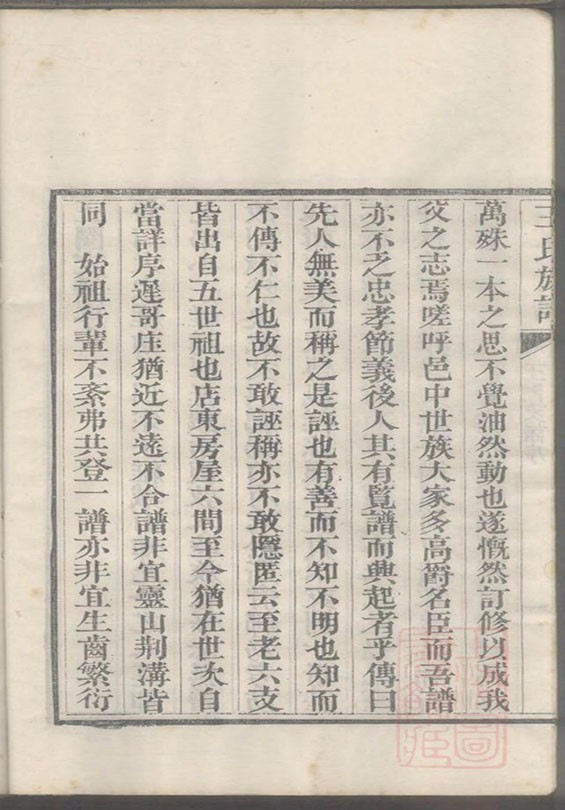 王氏族譜
萬殊一本之思不覺油然動也遂慨然訂修以成我
父之志焉嗟呼邑中世族大家多高爵名臣而吾譜
亦不乏忠孝節義後人其有覧譜而興起者乎傳曰
先人無美而稱之是誣也有善而不知不明也知而
不傳不仁也故不敢誣稱亦不敢隱匿云至老六支
皆出自五世祖也店東房屋六間至今猶在世次自
當詳序遲哥庄猶近不遠不合譜非宜靈山荆溝皆
同　始祖行輩不紊弗共登一譜亦非宜生齒繁衍